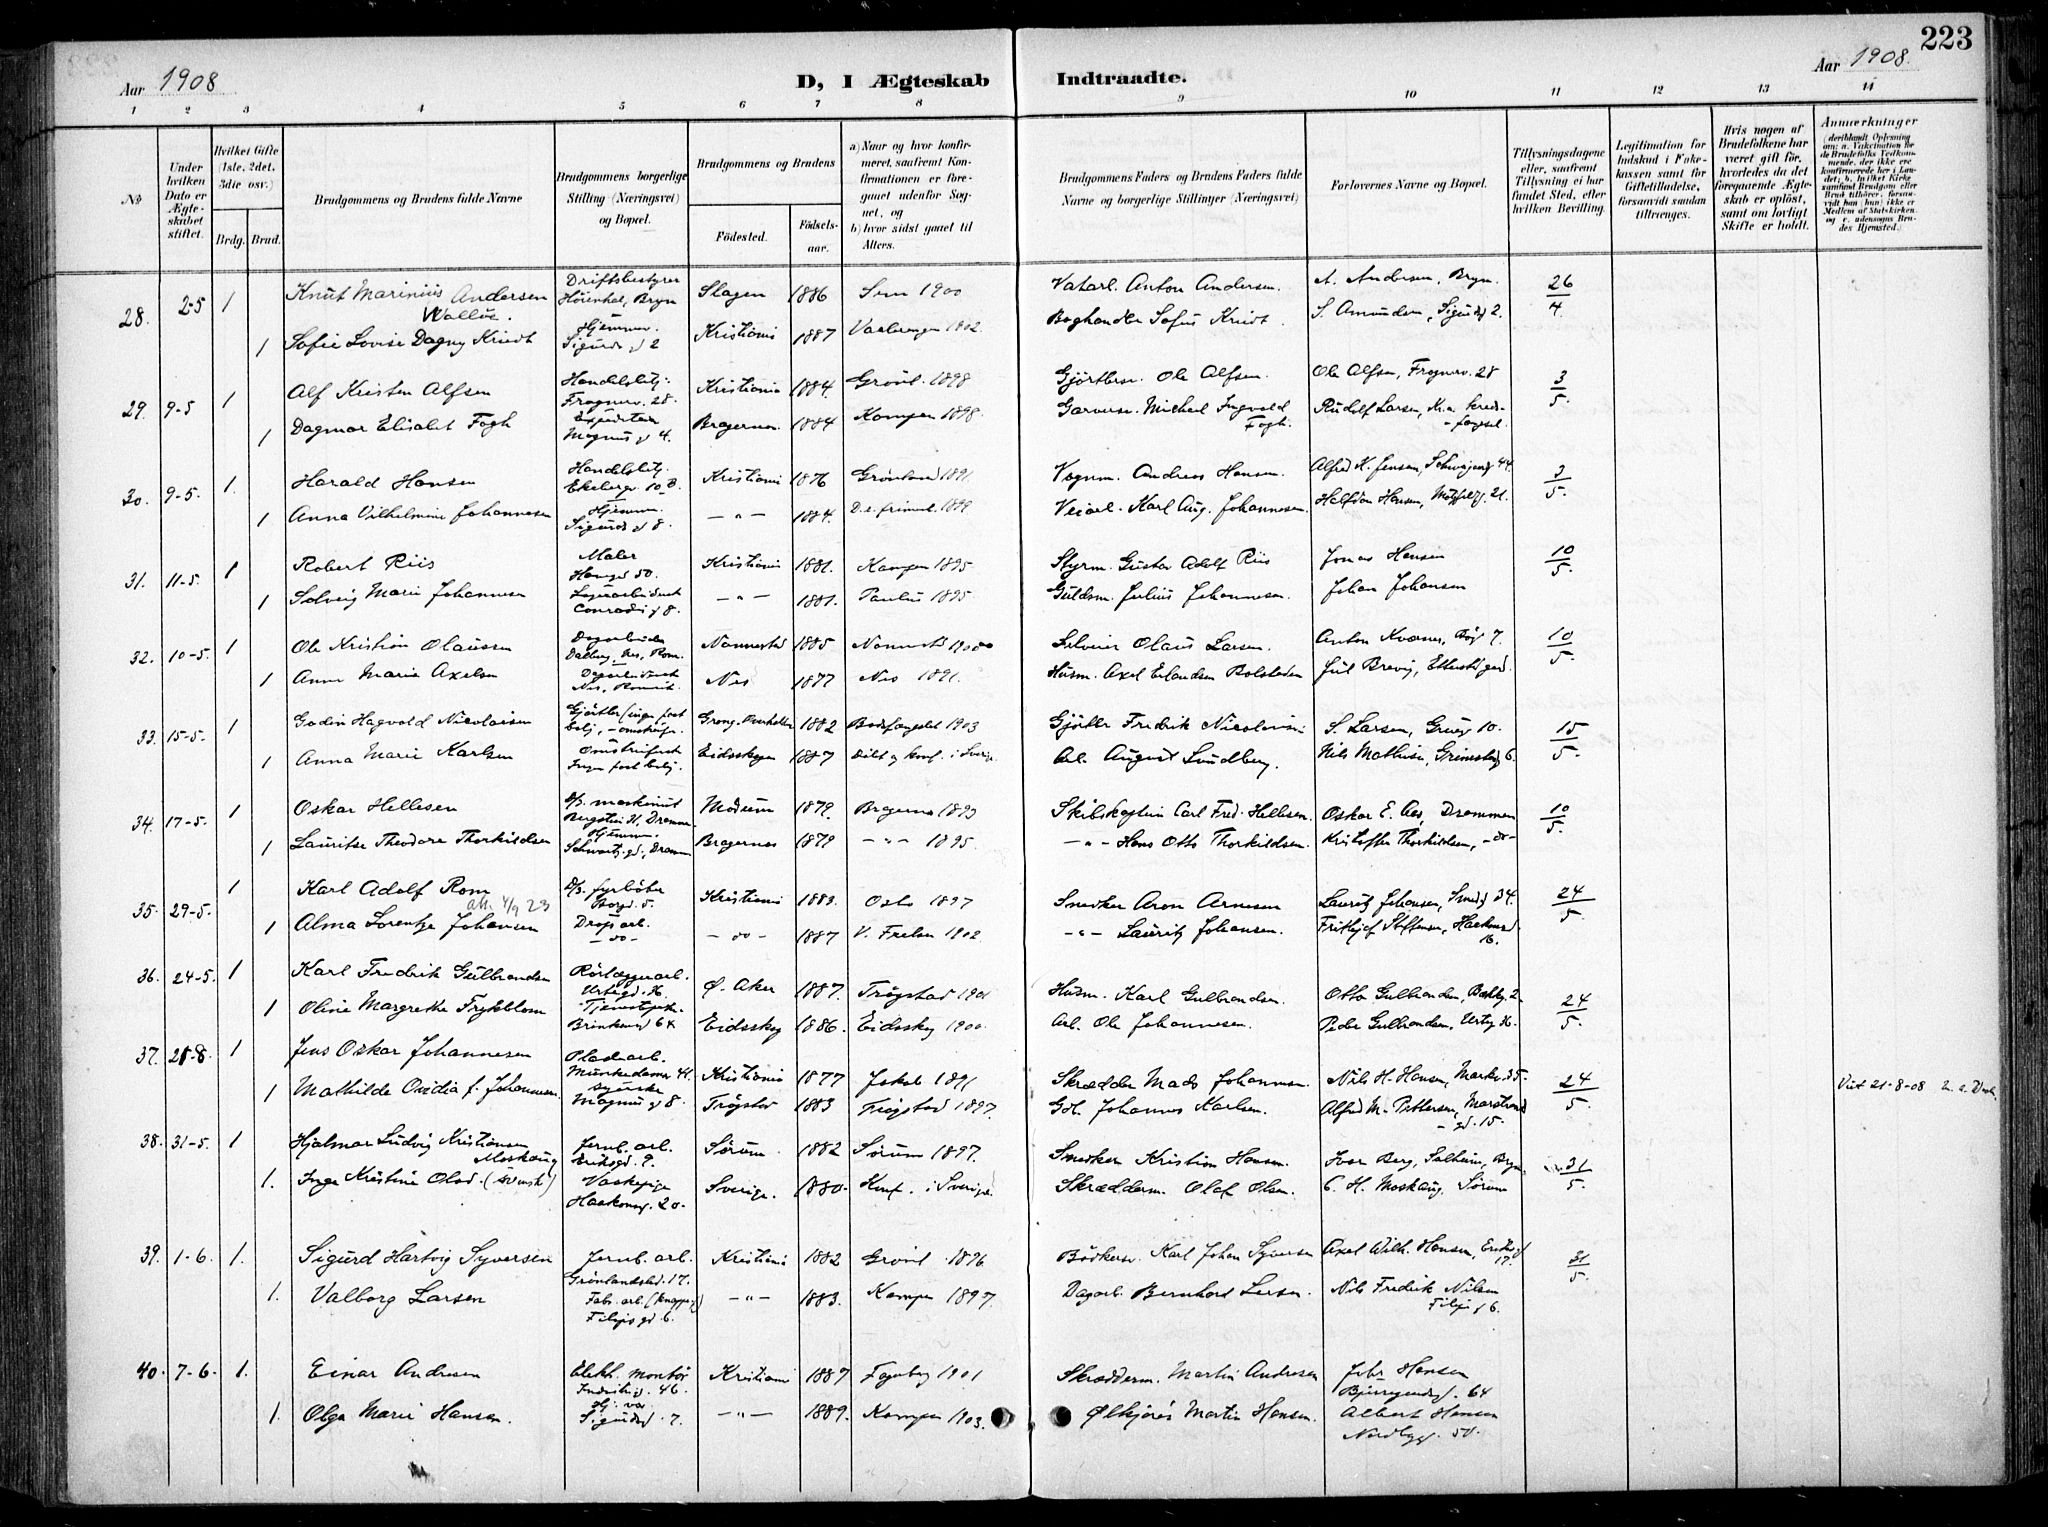 223
Aar 1908
D, I Ægteskab Indtraadte.
Aar 1908.
1 2 3 4 5 6 7 8 9 10 11 12 13 14
No
Under hvilken Dato er Ægteskabet stiftet.
Hvilket Gifte (1ste, 2det, 3die osv.)
Brdg. Brud.
Brudgommens og Brudens fulde Navne
Brudgommens borgerlige Stilling (Næringsvei) og Bopæl.
Brudgommens og Brudens
Fødested. Fødselsaar.
a) Naar og hvor konfirmeret, saafremt Konfirmationen er foregaaet udenfor Sognet, og
b) hvor sidst gaaet til Alters.
Brudgommens Faders og Brudens Faders fulde Navne og borgerlige Stillinger (Næringsvei)
Forlovernes Navne og Bopæl.
Tillysningsdagene eller, saafremt Tillysning ei har fundet Sted, efter hvilken Bevilling.
Legitimation for Indskud i Enkekassen samt for Giftetilladelse, forsaavidt saadan tiltrænges.
Hvis nogen af Brudefolkene har været gift før, hvorledes da det foregaaende Ægteskab er opløst, samt om lovligt Skifte er holdt.
Anmærkninger
(deriblandt Oplysning om: a. Vakcination for de Brudefolks Vedkommende, der ikke ere konfirmerede her i Landet; b. hvilket Kirkesamfund Brudgom eller Brud tilhører, forsaavidt han (hun) ikke er Medlem af Statskirken, og c. udensogns Brudes Hjemsted.)
28. 2-5 1 Knut Marinius Andersen Walløe. Driftsbestyrer Høienhal, Bryn Slagen 1886 Sem 1900 Vatarb. Anton Andersen. A. Andersen, Bryn. 26/4
1 Sofie Lovise Dagny Kriedt Hjemmev. Sigurds g 2 Kristiania 1887 Vaalerengen 1902. Boghandler Sofus Kriedt. S. Amundsen, Sigurdsg 2.
29. 9-5 1 Alf Kristen Alfsen Handelsbetj. Frognerv. 28. Kristiania 1884. Grønl. 1898 Gjørtlersv. Ole Alfsen. Ole Alfsen, Frognerv. 28 3/5
1 Dagmar Elisabet Fogh Magnus g 4. Bragernes 1884 Kampen 1898. Garversv. Michael Ingvald Fogh. Rudolf Larsen, Kr.a Kredsfængsel.
30. 9-5. 1. Harald Hansen Handelsbetj. Ekebergv. 10 B. Kristiania 1876 Grønland 1891 Vognm. Andreas Hansen. Alfred K. Jensen, Schweigaardsg 44. 3/5.
1 Anna Vilhelmine Johannesen Hjemm. Sigurds g 8. — " — 1884. 1899 Veiarb. Karl Aug. Johannesen. Halfdan Hansen, Motzfeldtsg. 21.
31. 11-5. 1 Robert Riis Maler Hausgd 50. Kristiania 1881. Kampen 1895 Styrm. Gustav Adolf Riis Jonas Hansen 10/5.
1 Solveig Marie Johannesen Conradis g 8. — " — 1881. Paulus 1895 Guldsm. Julius Johannesen. Johan Johansen
32. 10-5. 1 Ole Kristian Olaussen Dagarbeider Dalberg, Nes, Rom. Nannestad 1885 Nannestad 1900 Selveier Olaus Larsen. Anton Kværner, 7. 10/5.
1 Anne Marie Axelsen Nes, Romerik. Nes 1877 Nes 1891. Husm. Axel Erlandsen Bolstaden Jul Brevig,
33. 15-5. 1 Godvin Hagvald Nicolaisen Gjørtler (ingen fast bolig, omstreifer. 1882 Bodsfængslet 1903 Gjørtler Fredrik Nicolaisen S. Larsen, 10. 15/5.
1 Anna Marie Karlsen Omstreiferske Ingen fast bolig. Eidsskogen 1887 Døbt og konf. i Sverige Arb. August Lundberg. Nils Mathisen, 6.
34. 17-5. 1 Oskar Hellesen D/s. maskinist Drammen Modum 1879. Bragernes 1893 Skibskaptein Carl Fred. Hellesen. Oskar E. Aas, Drammen 10/5.
1 Lauritse Theodore Thorkildsen Hjemm. Schwartz gd., Drammen Bragernes 1879 — " — 1895. — " — Hans Otto Thorkildsen. Kristoffer Thorkildsen, - do -
35. 29-5. 1 Karl Adolf Rom D/s. fyrbøter Borgd. 5. Kristiania 1883. Oslo 1897 Snedker Aron Arnesen Lauritz Johansen, Smedg 34. 24/5
att. 4/9 23
1 Alma Lorentze Johansen Dropsarb. — do — — do — 1887 V. Frelser 1902. — " — Lauritz Johansen. Frithjof Steffensen, Haakonsgd 16.
36. 24-5. 1 Karl Fredrik Gulbrandsen Rørlæggerarb. Urtegd. 36. Ø. Aker 1887. Trøgstad 1901 Husm. Karl Gulbrandsen. Otto Gulbrandsen, 2. 24/5.
1 Oline Margrethe Frykblom Tjenestepike Brinkensgd 64 Eidsskog 1886. Eidsskog 1900. Arb. Ole Johannesen. Peder Gulbrandsen, Urteg 36.
37. 21-8. 1 Jens Oskar Johannesen Pladearb. Munkedamsv 41. Kristiania 1877 Jakob 1891 Skrædder Mads Johannesen. Nils H. Hansen, Markv. 35. 24/5.
1 Mathilde Ovidia f. Johannesen. Syerske Magnus g 8. Trøgstad 1883 Trøgstad 1897. Gdb. Johannes Karlsen. Alfred M. Pettersen, Marstrandgd. 15. Viet 21-8-08
38. 31-5. 1 Hjalmar Ludvig Kristiansen Moskaug Jernb. arb. Eriksgd. 9. Sørum 1882 Sørum 1897. Snedker Kristian Hansen. Ivar Berg, Solheim, Bryn 31/5.
1. Inga Kristine Olsd. (svensk) Vaskepige Haakonsg. 20. Sverige. 1880. Konf. i Sverige. Skrædderm. Olof Olsen. C. H. Moskaug, Sørum
39. 1-6. 1. Sigurd Hartvig Syversen Jernb. arb. Grønlandsled. 17. Kristiania 1882 Grønl. 1896 Bødkersv. Karl Johan Syversen Axel Wilh. Hansen, Eriksg 17. 31/5.
1. Valborg Larsen Fabr. arb. (knapper) Filipsgd. 6. — " — 1883. Kampen 1897. Dagarb. Bernhard Larsen. Nils Fredrik Nilsen Filipsg 6.
40. 7-6. 1. Einar Andresen Elekt. montør 46. Kristiania 1887 Fagerborg 1901 Skrædderm. Martin Andresen Hansen 64
1. Olga Marie Hansen. Sigurdsg. 7. — " — 1889. Kampen 1903. Ølkjører Martin Hansen. Albert Hansen Nordbygd. 50.